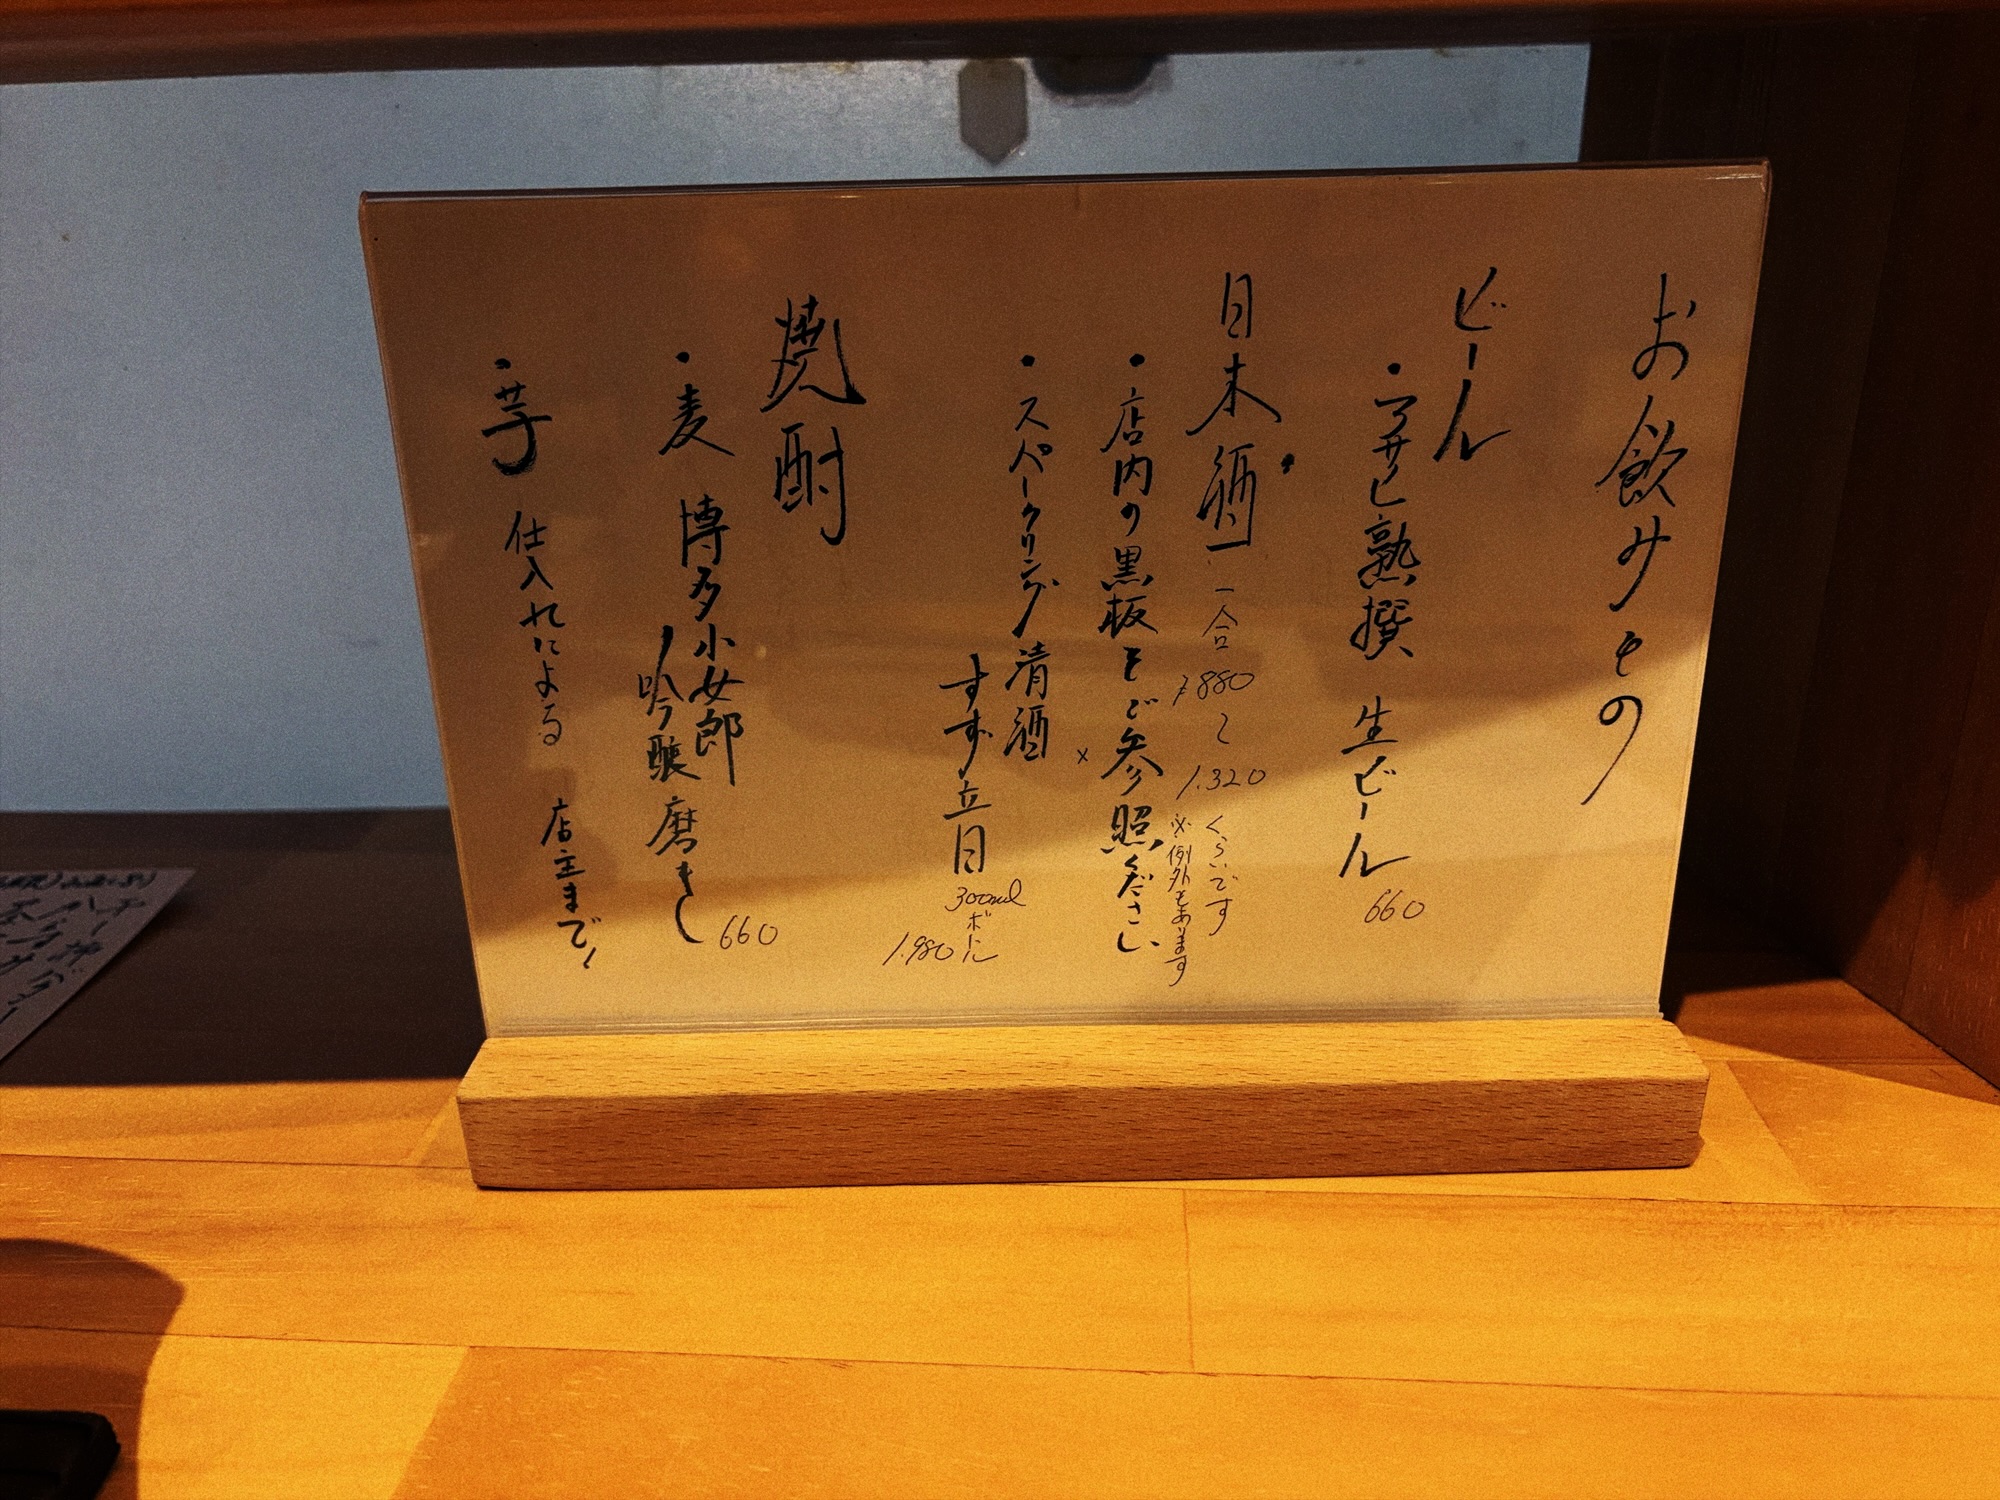 お飲みもの
ビール
・アサヒ熟撰 生ビール 660
日本酒 一合 ¥880 〜 1.320 くらいです
※例外もあります
・店内の黒板をご参照ください
・スパークリング清酒
すず音 300mlボトル 1.980
焼酎
・麦 博多小女郎
吟醸磨き 660
・芋 仕入れによる 店主まで!